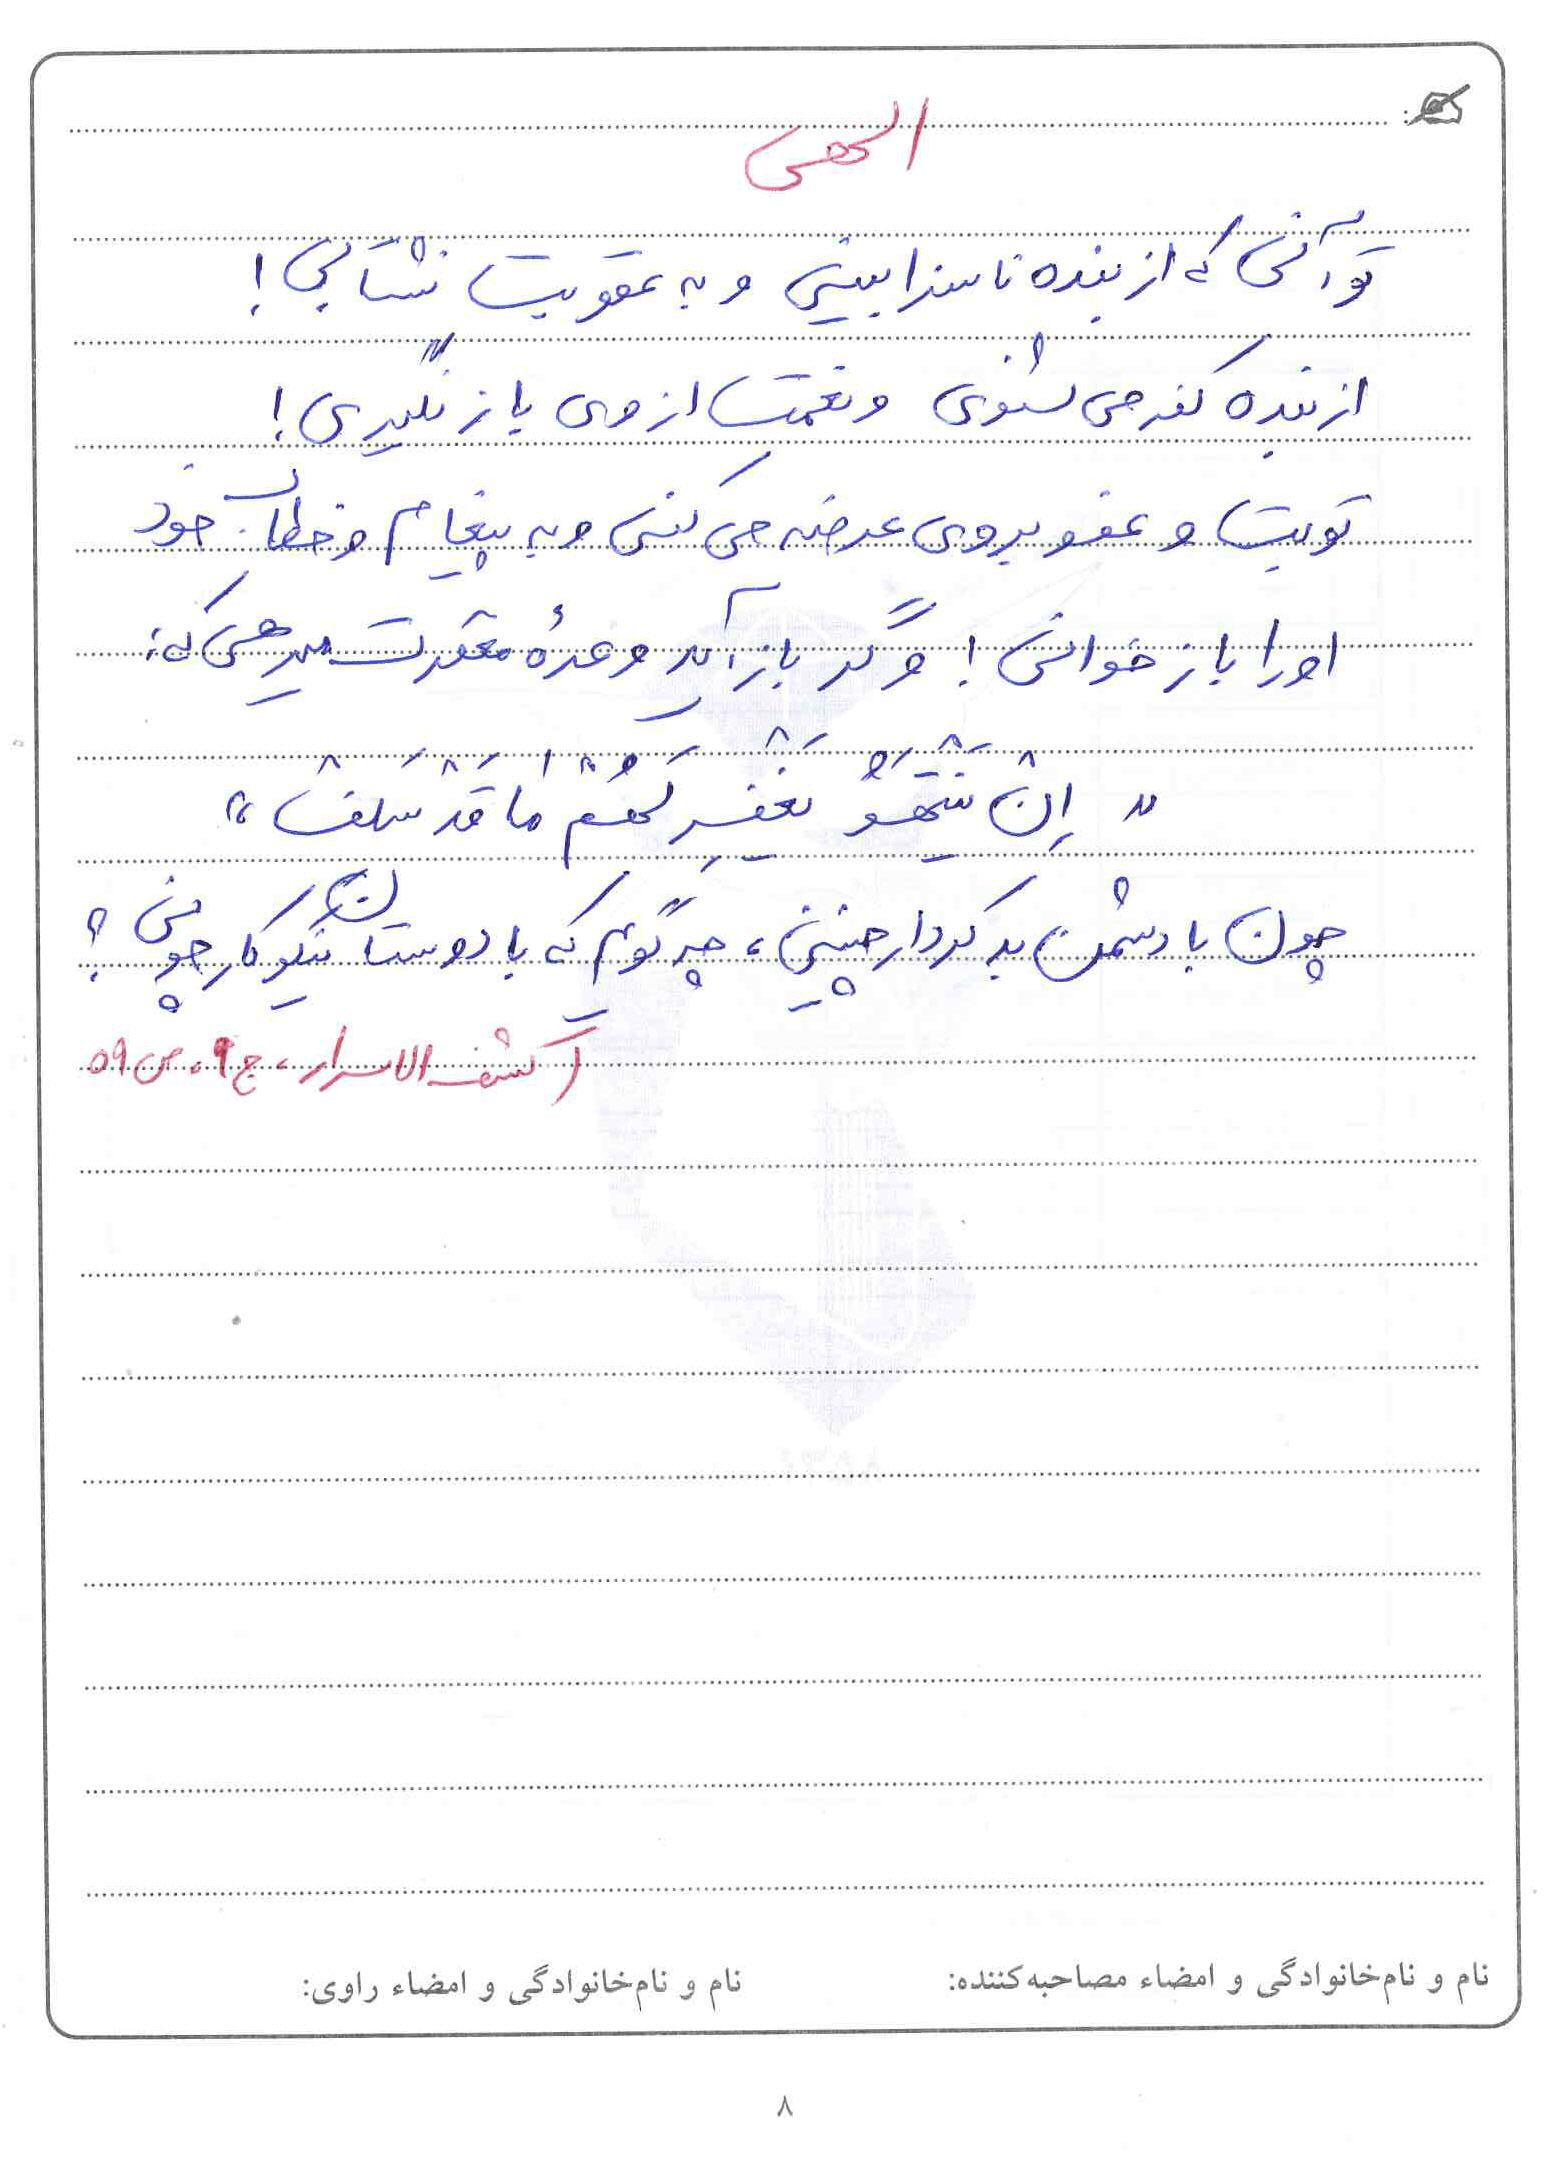 الهی
تو آنی که از بنده ناسزا بینی و به عقوبت نشتابی!
از بنده کفر می شنوی و نعمت از وی باز نگیری!
توبت و عفو بروی عرضه می کنی و به پیغام و خطاب خود
او را باز خوانی! و گر باز آید وعدهٔ مغفرت میدهی که:
« اِنْ یَنْتَهُوْ یُغْفَرْ لَهُمْ مٰا قَدْ سَلَفْ »
چون با دشمن بد کردار چنینی، چه گویم که با دوستان نیکوکار چونی؟
(کشف الاسرار، ج ۹، ص ۵۹
نام و نام‌خانوادگی و امضاء مصاحبه‌کننده:
نام و نام‌خانوادگی و امضاء راوی:
۸